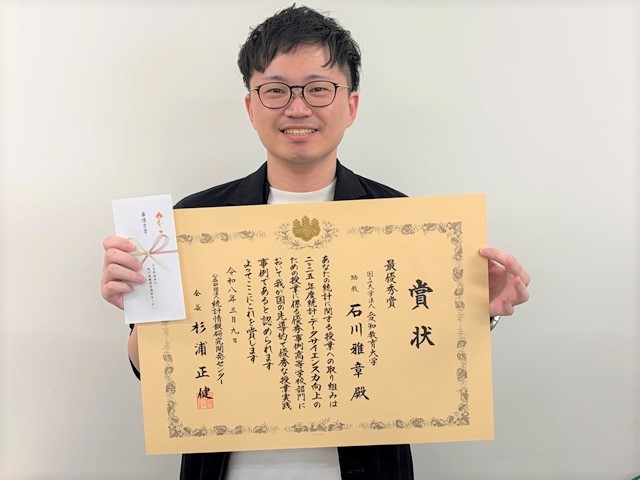 賞状
最優秀賞
国立大学法人 愛知教育大学
助教 石川雅章殿
あなたの統計に関する授業への取り組みは
二〇二五年度統計・データサイエンス力向上の
ための授業に係る優秀事例高等学校部門に
おいて我が国の先導的で優秀な授業実践
事例であると認められます
よってここにこれを賞します
令和八年三月九日
公益財団法人統計情報研究開発センター
会長 杉浦正健
最優秀賞